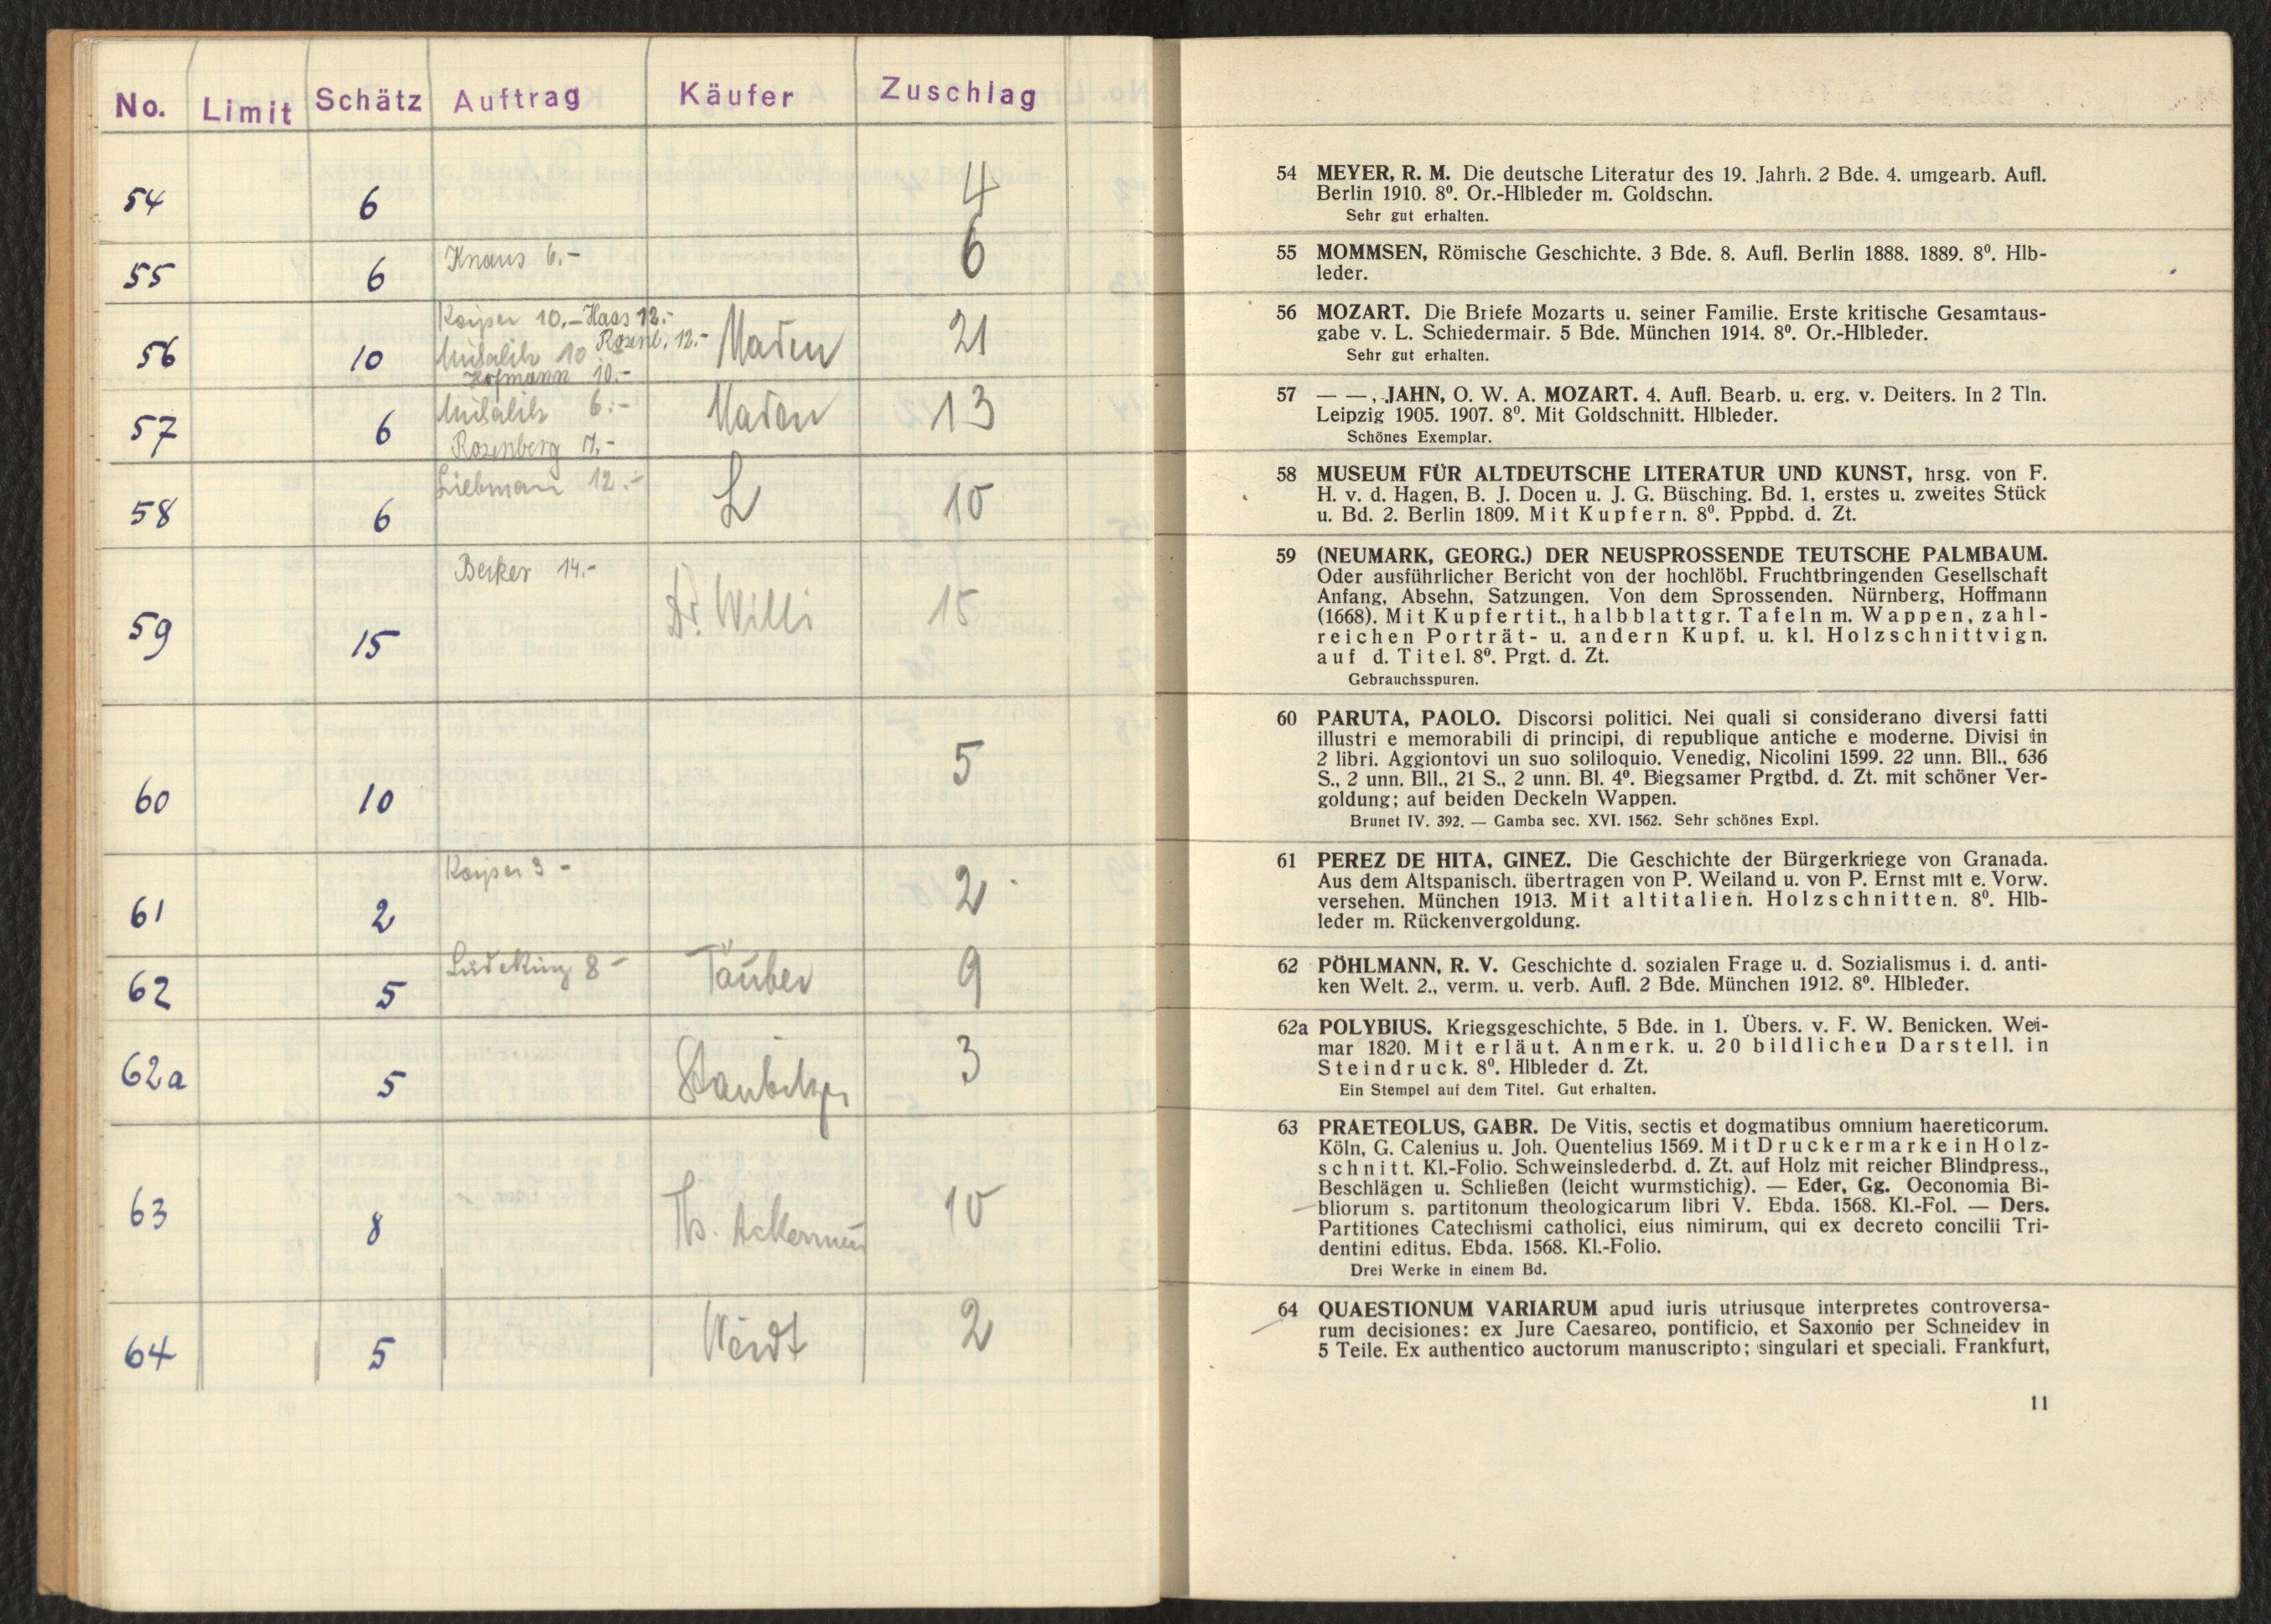 No. Limit Schätz Auftrag Käufer Zuschlag
54 6 4
55 6 Knaus 6.- 6
Kayser 10.- Haas 12.-
Rosenb. 12.-
56 10 10 21
Hofmann 10.-
57 6 6.- 13
Rosenberg 7.-
Liebmann 12.-
58 6 L 10
Becker 14.-
59 15 Dr. Willi 15
60 10 5
Kayser 3 -
61 2 2
62 5 Lüdeking 8 - Täuber 9
62a 5 3
63 8 Th. Ackermann 10
64 5 Weidt 2
54 MEYER, R. M. Die deutsche Literatur des 19. Jahrh. 2 Bde. 4. umgearb. Aufl.
Berlin 1910. 8⁰. Or.-Hlbleder m. Goldschn.
Sehr gut erhalten.
55 MOMMSEN, Römische Geschichte. 3 Bde. 8. Aufl. Berlin 1888. 1889. 8⁰. Hlb-
leder.
56 MOZART. Die Briefe Mozarts u. seiner Familie. Erste kritische Gesamtaus-
gabe v. L. Schiedermair. 5 Bde. München 1914. 8⁰. Or.-Hlbleder.
Sehr gut erhalten.
57 — —, JAHN, O. W. A. MOZART. 4. Aufl. Bearb. u. erg. v. Deiters. In 2 Tln.
Leipzig 1905. 1907. 8⁰. Mit Goldschnitt. Hlbleder.
Schönes Exemplar.
58 MUSEUM FÜR ALTDEUTSCHE LITERATUR UND KUNST, hrsg. von F.
H. v. d. Hagen, B. J. Docen u. J. G. Büsching. Bd. 1, erstes u. zweites Stück
u. Bd. 2. Berlin 1809. Mit Kupfern. 8⁰. Pppbd. d. Zt.
59 (NEUMARK, GEORG.) DER NEUSPROSSENDE TEUTSCHE PALMBAUM.
Oder ausführlicher Bericht von der hochlöbl. Fruchtbringenden Gesellschaft
Anfang, Absehn, Satzungen. Von dem Sprossenden. Nürnberg, Hoffmann
(1668). Mit Kupfertit., halbblattgr. Tafeln m. Wappen, zahl-
reichen Porträt- u. andern Kupf. u. kl. Holzschnittvign.
auf d. Titel. 8⁰. Prgt. d. Zt.
Gebrauchsspuren.
60 PARUTA, PAOLO. Discorsi politici. Nei quali si considerano diversi fatti
illustri e memorabili di principi, di republique antiche e moderne. Divisi in
2 libri. Aggiontovi un suo soliloquio. Venedig, Nicolini 1599. 22 unn. Bll., 636
S., 2 unn. Bll., 21 S., 2 unn. Bl. 4⁰. Biegsamer Prgtbd. d. Zt. mit schöner Ver-
goldung; auf beiden Deckeln Wappen.
Brunet IV. 392. — Gamba sec. XVI. 1562. Sehr schönes Expl.
61 PEREZ DE HITA, GINEZ. Die Geschichte der Bürgerkriege von Granada.
Aus dem Altspanisch. übertragen von P. Weiland u. von P. Ernst mit e. Vorw.
versehen. München 1913. Mit altitalien. Holzschnitten. 8⁰. Hlb-
leder m. Rückenvergoldung.
62 PÖHLMANN, R. V. Geschichte d. sozialen Frage u. d. Sozialismus i. d. anti-
ken Welt. 2., verm. u. verb. Aufl. 2 Bde. München 1912. 8⁰. Hlbleder.
62a POLYBIUS. Kriegsgeschichte, 5 Bde. in 1. Übers. v. F. W. Benicken. Wei-
mar 1820. Mit erläut. Anmerk. u. 20 bildlichen Darstell. in
Steindruck. 8⁰. Hlbleder d. Zt.
Ein Stempel auf dem Titel. Gut erhalten.
63 PRAETEOLUS, GABR. De Vitis, sectis et dogmatibus omnium haereticorum.
Köln, G. Calenius u. Joh. Quentelius 1569. Mit Druckermarke in Holz-
schnitt. Kl.-Folio. Schweinslederbd. d. Zt. auf Holz mit reicher Blindpress.,
Beschlägen u. Schließen (leicht wurmstichig). — Eder, Gg. Oeconomia Bi-
bliorum s. partitonum theologicarum libri V. Ebda. 1568. Kl.-Fol. — Ders.
Partitiones Catechismi catholici, eius nimirum, qui ex decreto concilii Tri-
dentini editus. Ebda. 1568. Kl.-Folio.
Drei Werke in einem Bd.
64 QUAESTIONUM VARIARUM apud iuris utriusque interpretes controversa-
rum decisiones: ex Jure Caesareo, pontificio, et Saxonio per Schneidev in
5 Teile. Ex authentico auctorum manuscripto; singulari et speciali. Frankfurt,
11